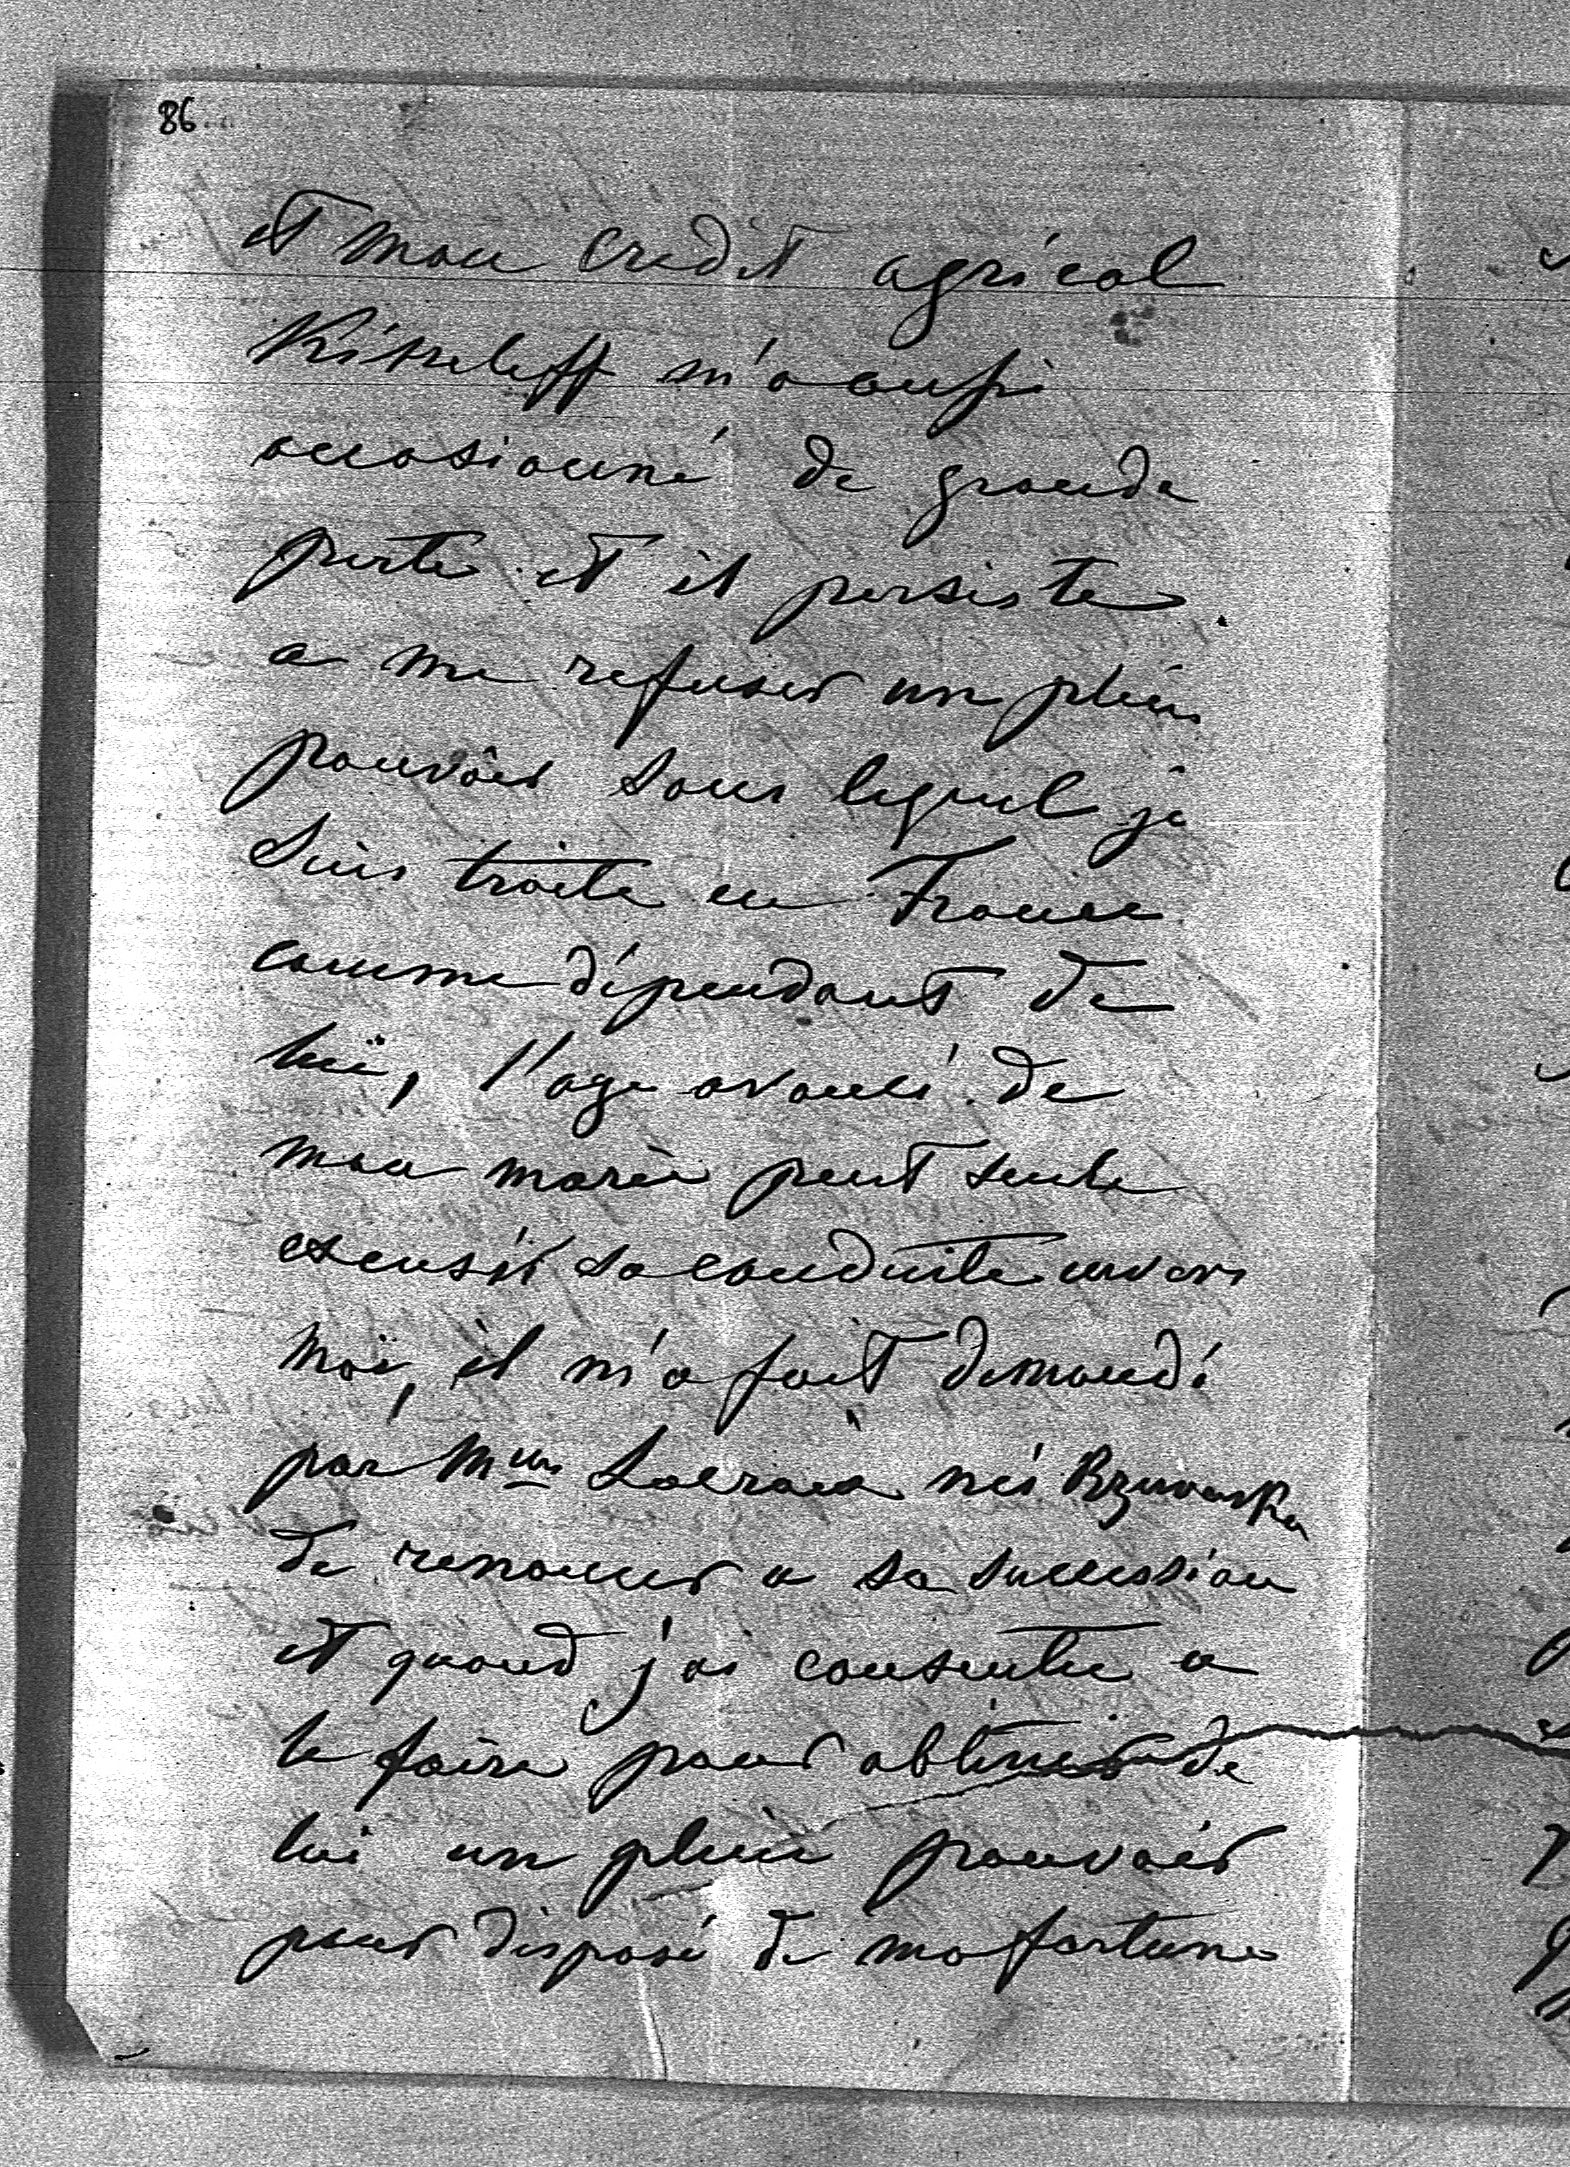 86
et mon credit agricol
Kisseleff m'a aussi
occasionné de grande
perte et il persiste
a me refuser un plein
pouvoir sous lequel je
suis traite en France
comme dépendant de
lui, l'age avancé de
mon marie peut seule
excusér sa conduite envers
moi, il m'a fait demandé
par Mme née
de renoncer a sa succession
et quand j'ai consentie a
le faire pour obtenir de
lui un plein pouvoir
pour disposé de ma fortune